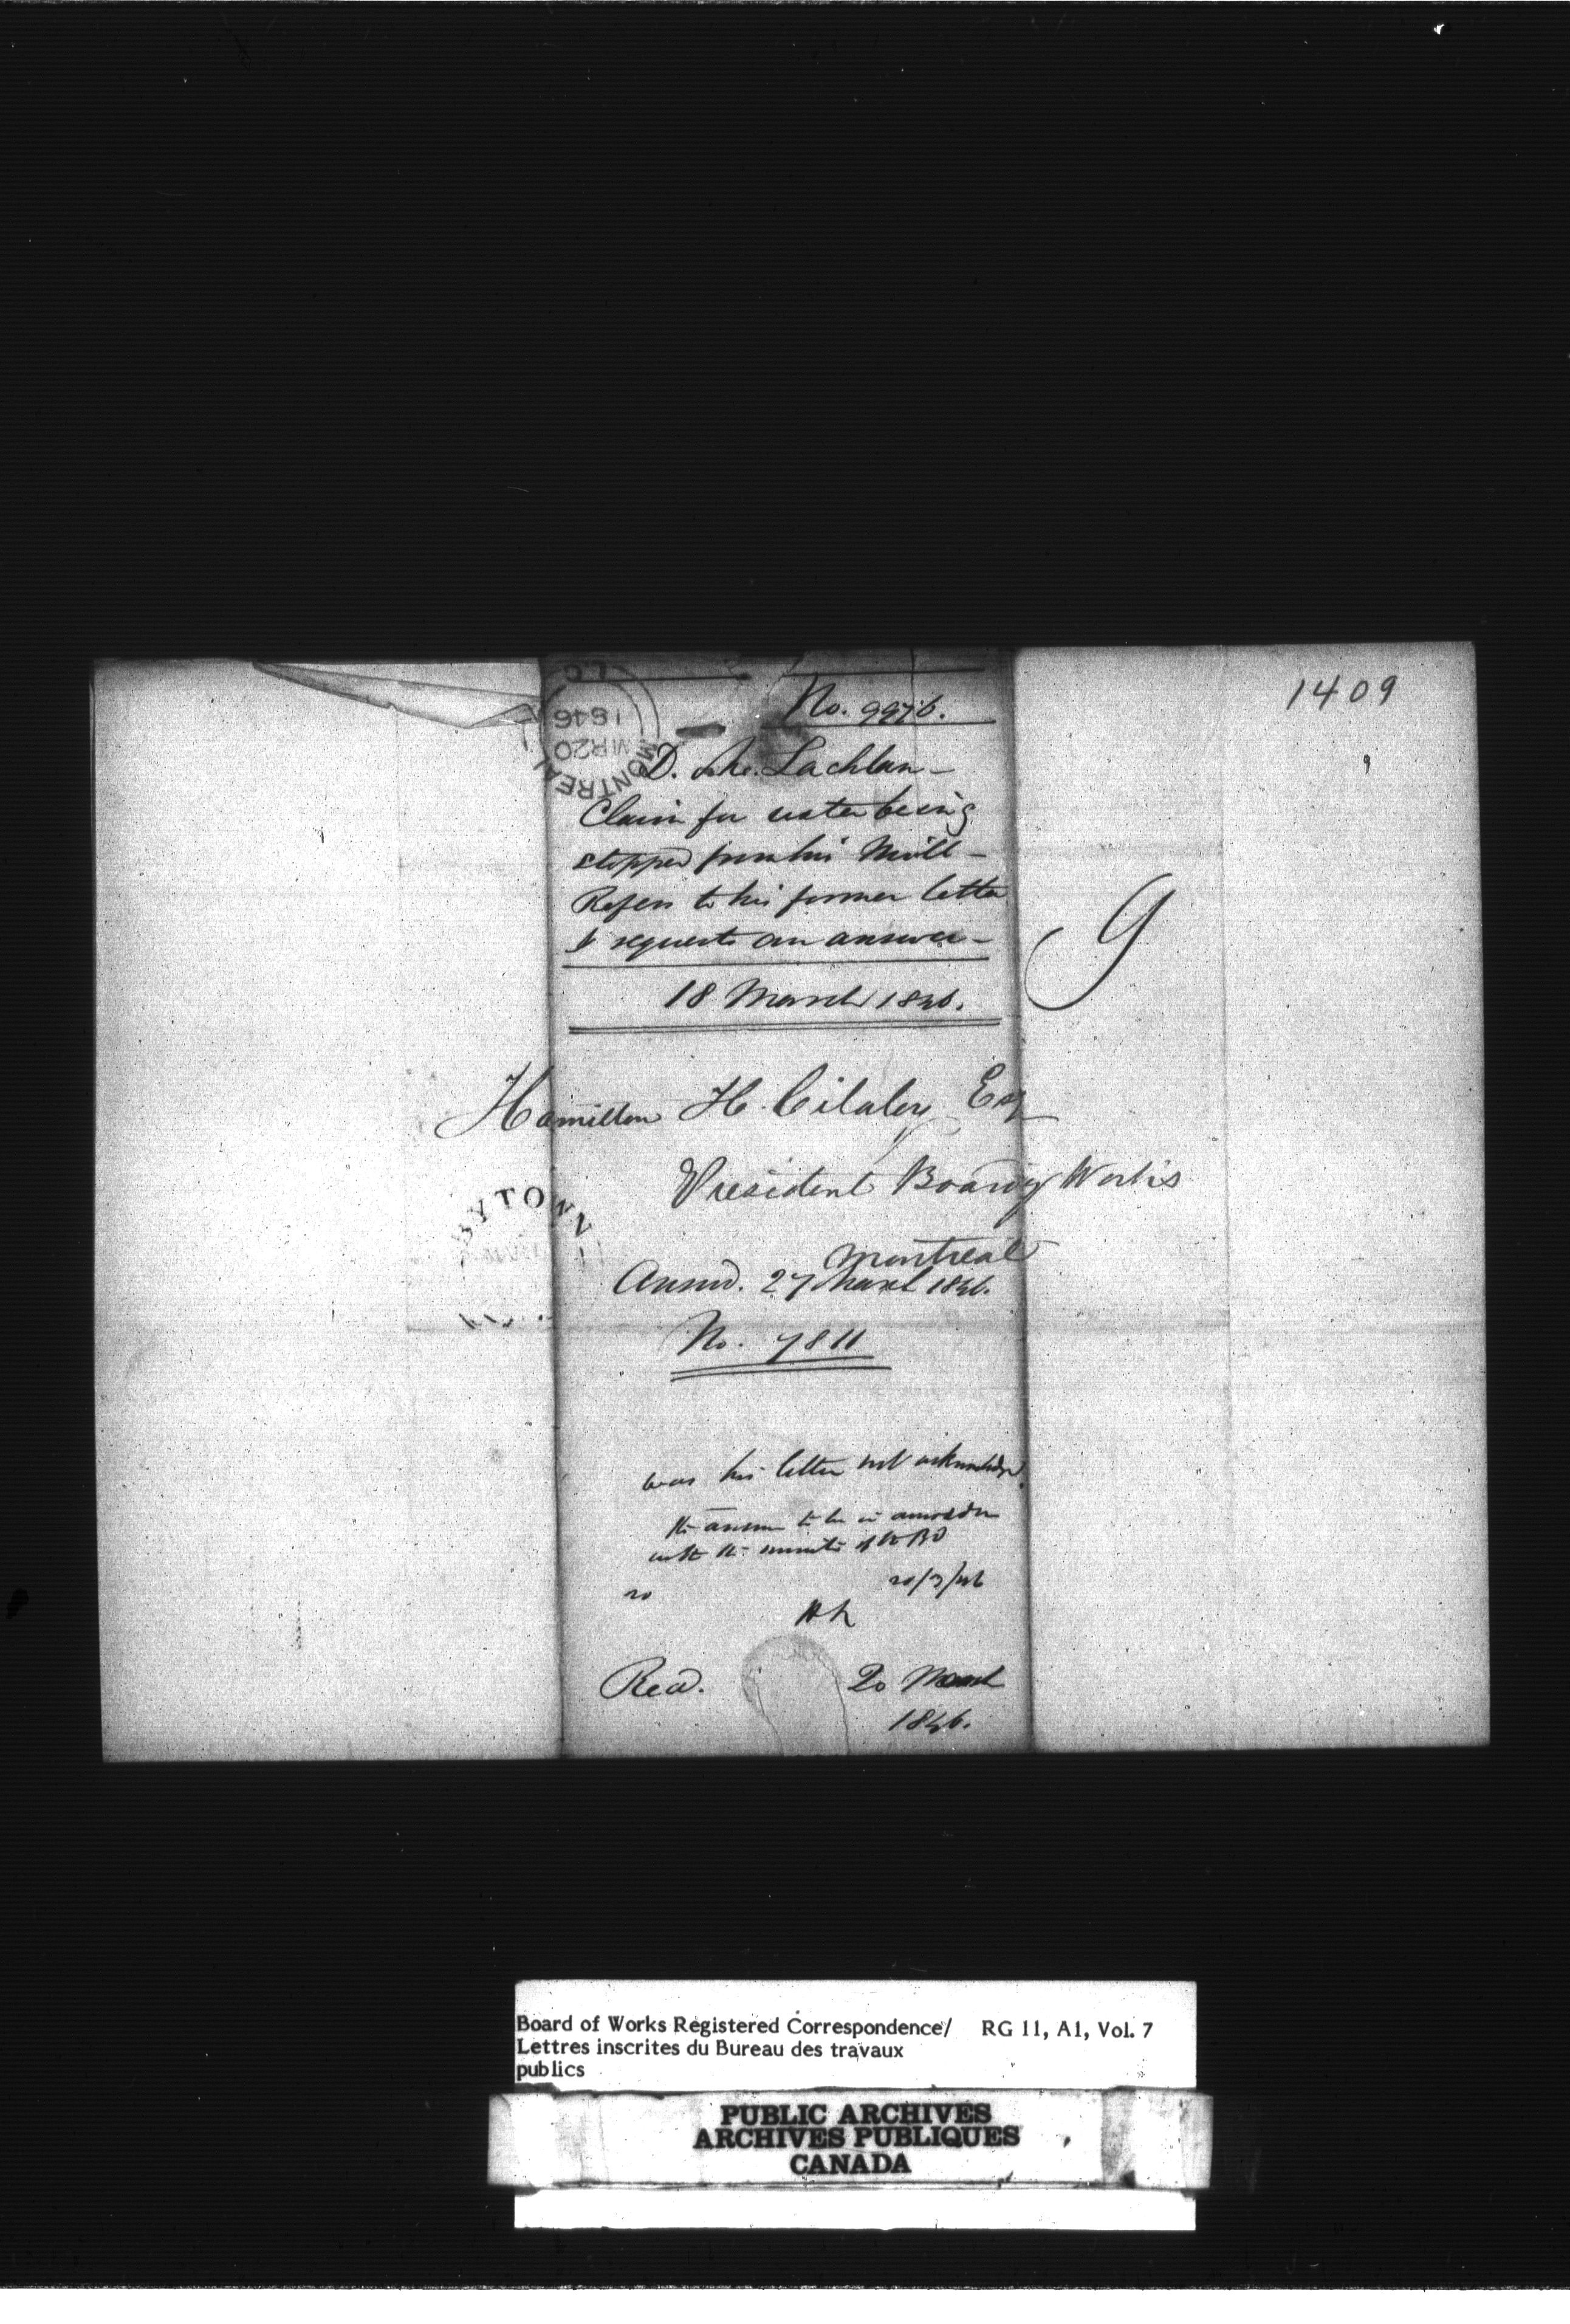 1409
L.C.
1846
MR 20
MONTREAL
No. 9976.
D. Mc.Lachlan -
Claim for water being
stopped from his Mill -
Refers to his former letter
& requests an answer -
18 March 1846.
9
Hamilton H. Cilaley Esq
President Board of Works
Montreal
BYTOWN
Answd. 27 March 1846.
No. 7811
was his letter not acknowledged
the answer to be in accordance
with the minute of the BD
20/3/46
HK
Recd. 20 March
1846.
Board of Works Registered Correspondence/ RG 11, A1, Vol. 7
Lettres inscrites du Bureau des travaux
publics
PUBLIC ARCHIVES
ARCHIVES PUBLIQUES
CANADA